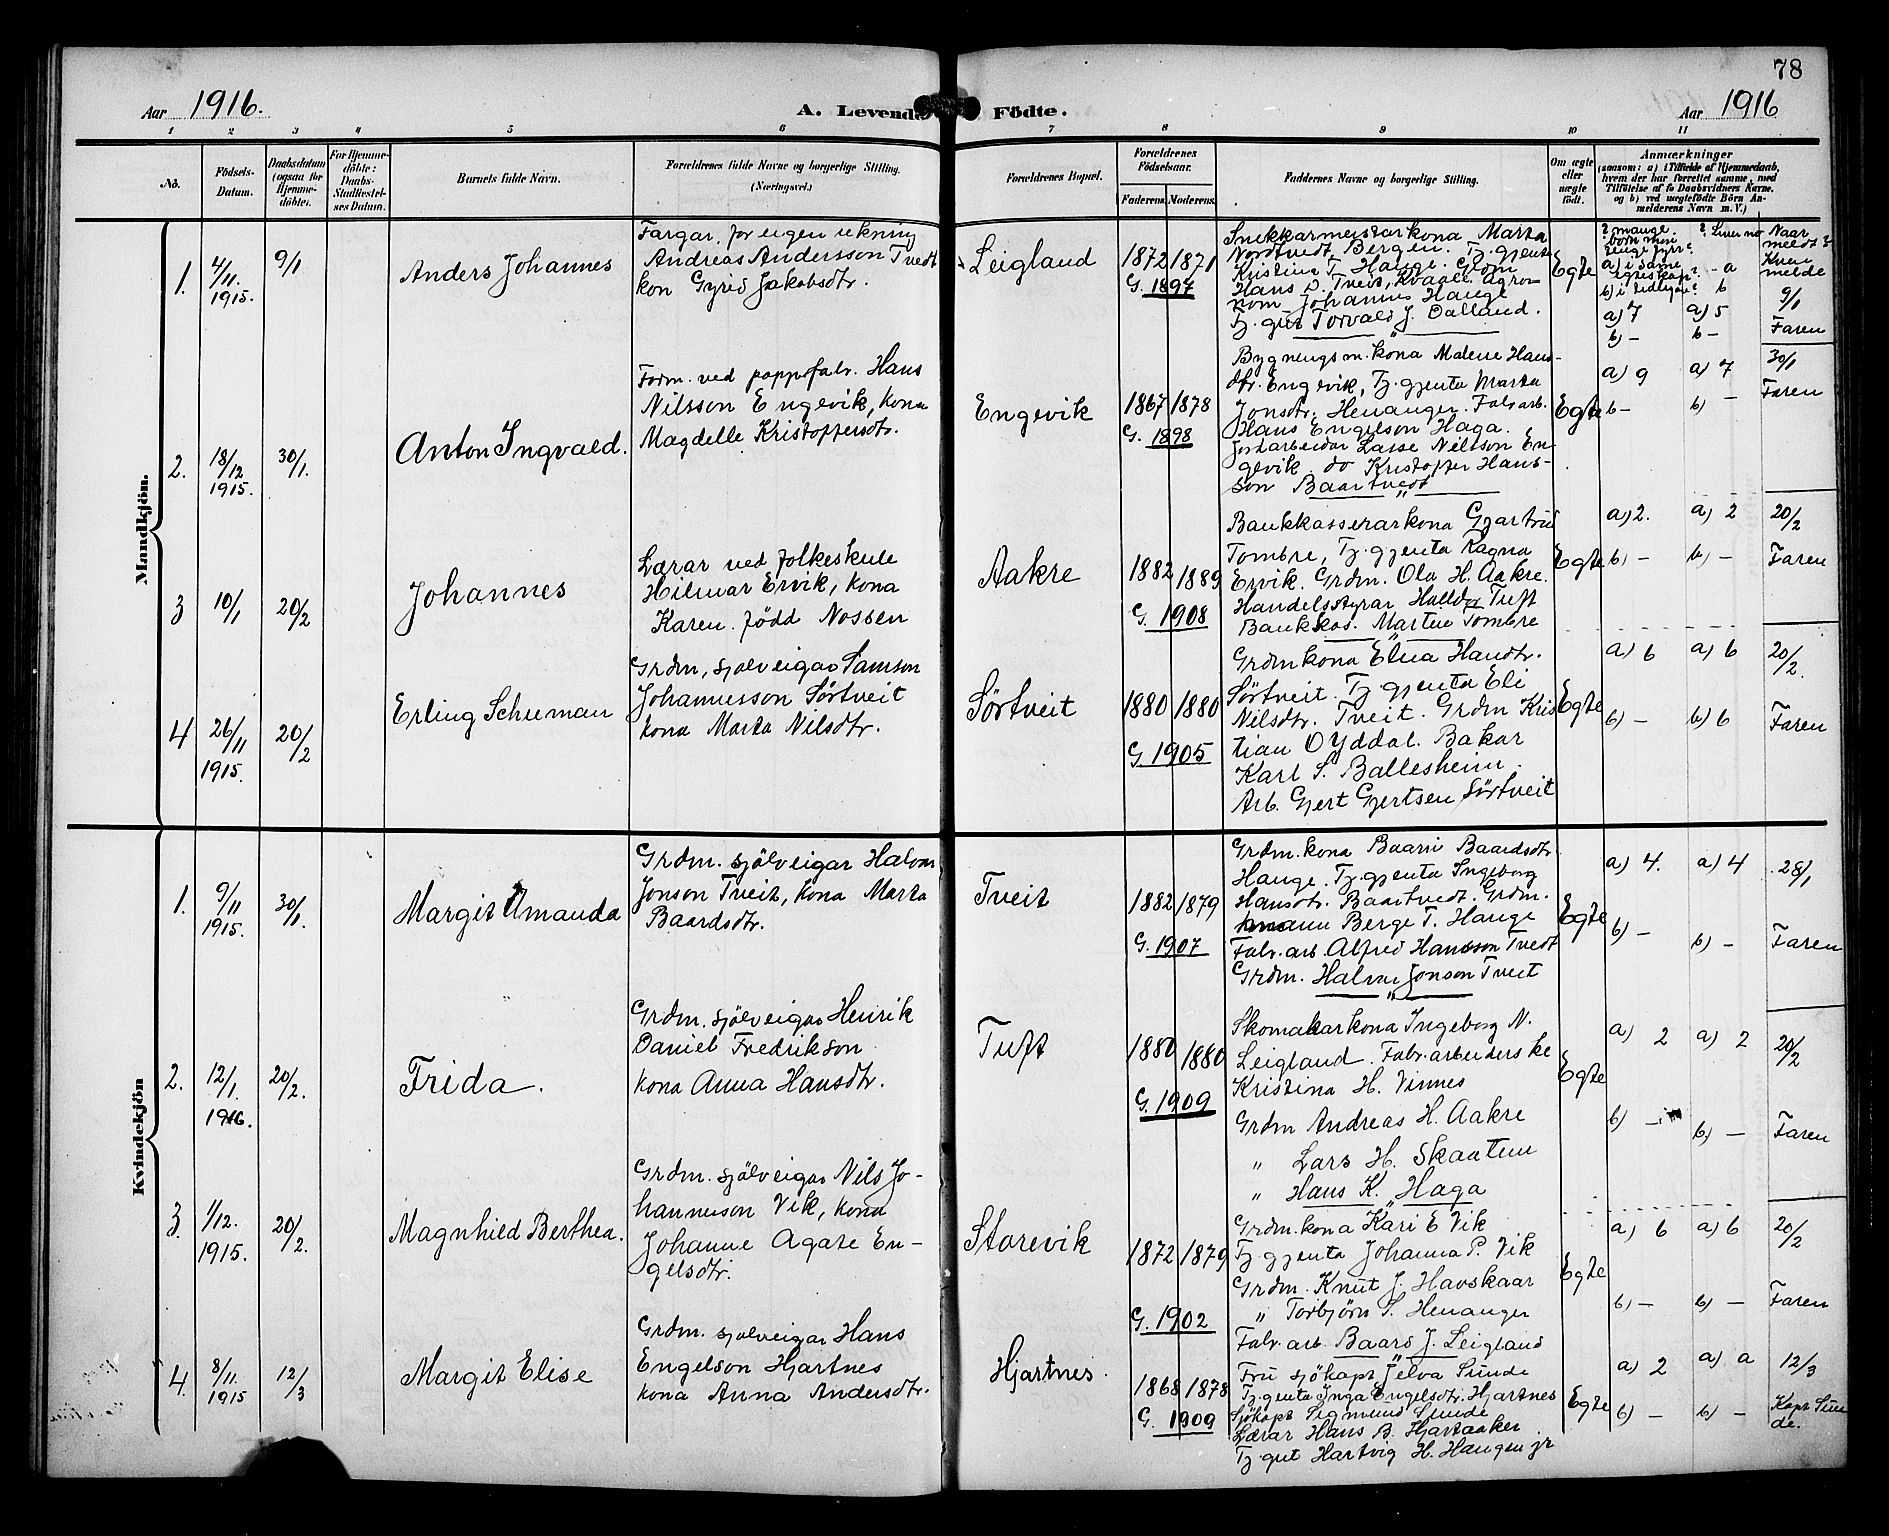 78
Aar 1916.
A. Levende Födte.
Aar 1916
1 2 3 4 5 6 7 8 9 10 11
No.
Födsels-
Datum.
Daabsdatum
(ogsaa for
Hjemme-
döbte).
For Hjemme-
döbte:
Daabs-
Stadfæstel-
ses Datum.
Barnets fulde Navn.
Forældrenes fulde Navne og borgerlige Stilling.
(Næringsvei.)
Forældrenes Bopæl.
Forældrenes
Födselsaar.
Faderens. Moderens.
Faddernes Navne og borgerlige Stilling.
Om ægte
eller
uægte
födt.
Anmærkninger
(saasom: a) i Tilfælde af Hjemmedaab,
hvem der har forrettet samme, med
Tilföielse af to Daabsvidners Navne,
og b) ved uægtefödte Börn An-
melderens Navn m. V.)
Mandkjön.
1.
4/11.
1915.
9/1
Anders Johannes
Fargar, for eigen rekning
Andreas Andersson Tvedt
kon Gyrid Jakobsdtr.
Leigland
1872 1871
G. 1897
Snekkarmeisterkona Marta
Nordtvedt Bergen. Tj. gjenta
Kristina T. Hauge. Grdm
Hans D. Tveit, Kvaale. Agro-
nom Johannes Hauge
Tj. gut Torvald J. Dalland.
Egte
a) 7
b) –
a) 5
b –
Naar
meldt?
Kven
melde
9/1
Faren
2.
18/12
1915.
30/1.
Anton Ingvald.
Form. ved pappfabr. Hans
Nilsson Engevik, kona
Magdelle Kristoffersdtr.
Engevik
1867 1878
G. 1898
Bygnengsm. kona Malene Hans-
dtr. Engevik, Tj. gjenta Marta
Jonsdtr. Henanger. Fabr arb.
Hans Engelson Haga.
Jordarbeidar Lasse Nilsson En-
gevik. do Kristoffer Hans-
son Baartvedt
Egte
a) 9
b –
a) 7
b) –
30/1
Faren
3
10/1
20/2
Johannes
Lærar ved folkeskule
Hilmar Ervik, kona
Karen. född Nossen
Aakre
1882 1889
G. 1908
Bankkasserarkona Gjartrud
Tombre, Tj. gjenta Ragna
Ervik. Grdm. Ola H. Aakre.
Handelsstyrar Halldor Tuft
Bankkas. Martin Tombre
Egte
a) 2.
b) –
a) 2
b) –
20/2
Faren
4
26/11
1915.
20/2
Erling Schuman
Grdm, sjolveigar Samson
Johannesson Sørtveit
kona Marta Nilsdtr.
Sørtveit
1880 1880
G. 1905
Grdmkona Elna Hansdtr.
Sørtveit. Tj gjenta Eli
Nilsdtr. Tveit. Grdm Kris
tian Øyddal. Bakar
Karl S. Ballesheim.
Arb. Gjert Gjertsen Sørtveit
Egte
a) 6
b) –
a) 6
b) 6
20/2.
Faren
Kvindekjön
1.
9/11
1915.
30/1.
Margit Amanda
Grdm. sjölveigar Halvor
Jonson Tveit, kona Marta
Baardsdtr.
Tveit
1882 1879
G. 1907
Grdm. kona Baarni Baardsdtr
Hauge. Tj. gjenta Ingeborg
Hansdtr. Baartvedt. Grdm.
Berge T. Hauge
Fabr. arb Alfred Hansson Tvedt
Grdm. Halvor Jonson Tveit
Egte
a) 4.
b) –
a) 4
b) –
28/1
Faren
2.
12/1
1916.
20/2.
Frida.
Grdm. sjölveigar Henrik
Daniel Fredrikson
kona Anna Hansdtr.
Tuft
1880 1880
G. 1909
Skomakarkona Ingeborg N.
Leigland. Fabr. arbeiderske
Kristina H. Vinnes
Grdm Andreas H. Aakre
" Lars H. Skaatun
" Hans K. Haga
Egte
a) 2
b) –
a) 2
b) –
20/2
Faren
3.
1/12.
1915.
20/2.
Magnhild Berthea.
Grdm. sjölveigar Nils Jo-
hannesson Vik, kona
Johanne Agate En-
gelsdtr.
Storevik
1872 1879
G. 1902
Grdm. kona Kari E Vik
Tj gjenta Johanna P. Vik
Grdm. Knut J. Havskaar
" Torbjørn S. Henanger
Fabr. arb. Baard J. Leigland
Egte
a) 6
b) –
a) 6
b) –
20/2
Faren
4.
8/11.
1915
12/3
Margit Elise
Grdm. sjolveigar Hans
Engelson Hjartnes
kona Anna Andersdtr.
Hjartnes.
1868 1878
G. 1909
Fru sjökapt Jelva Sunde
Tj. gjenta Inga Engelsdtr. Hjartnes
Sjökapt Sigmund Sunde
Lærar Hans B. Hjartaaker
Tj. gut Hartvig H. Haugen jr
Egte
a) 2
b) –
a) a
b) –
12/3
Kapt Sun
de.